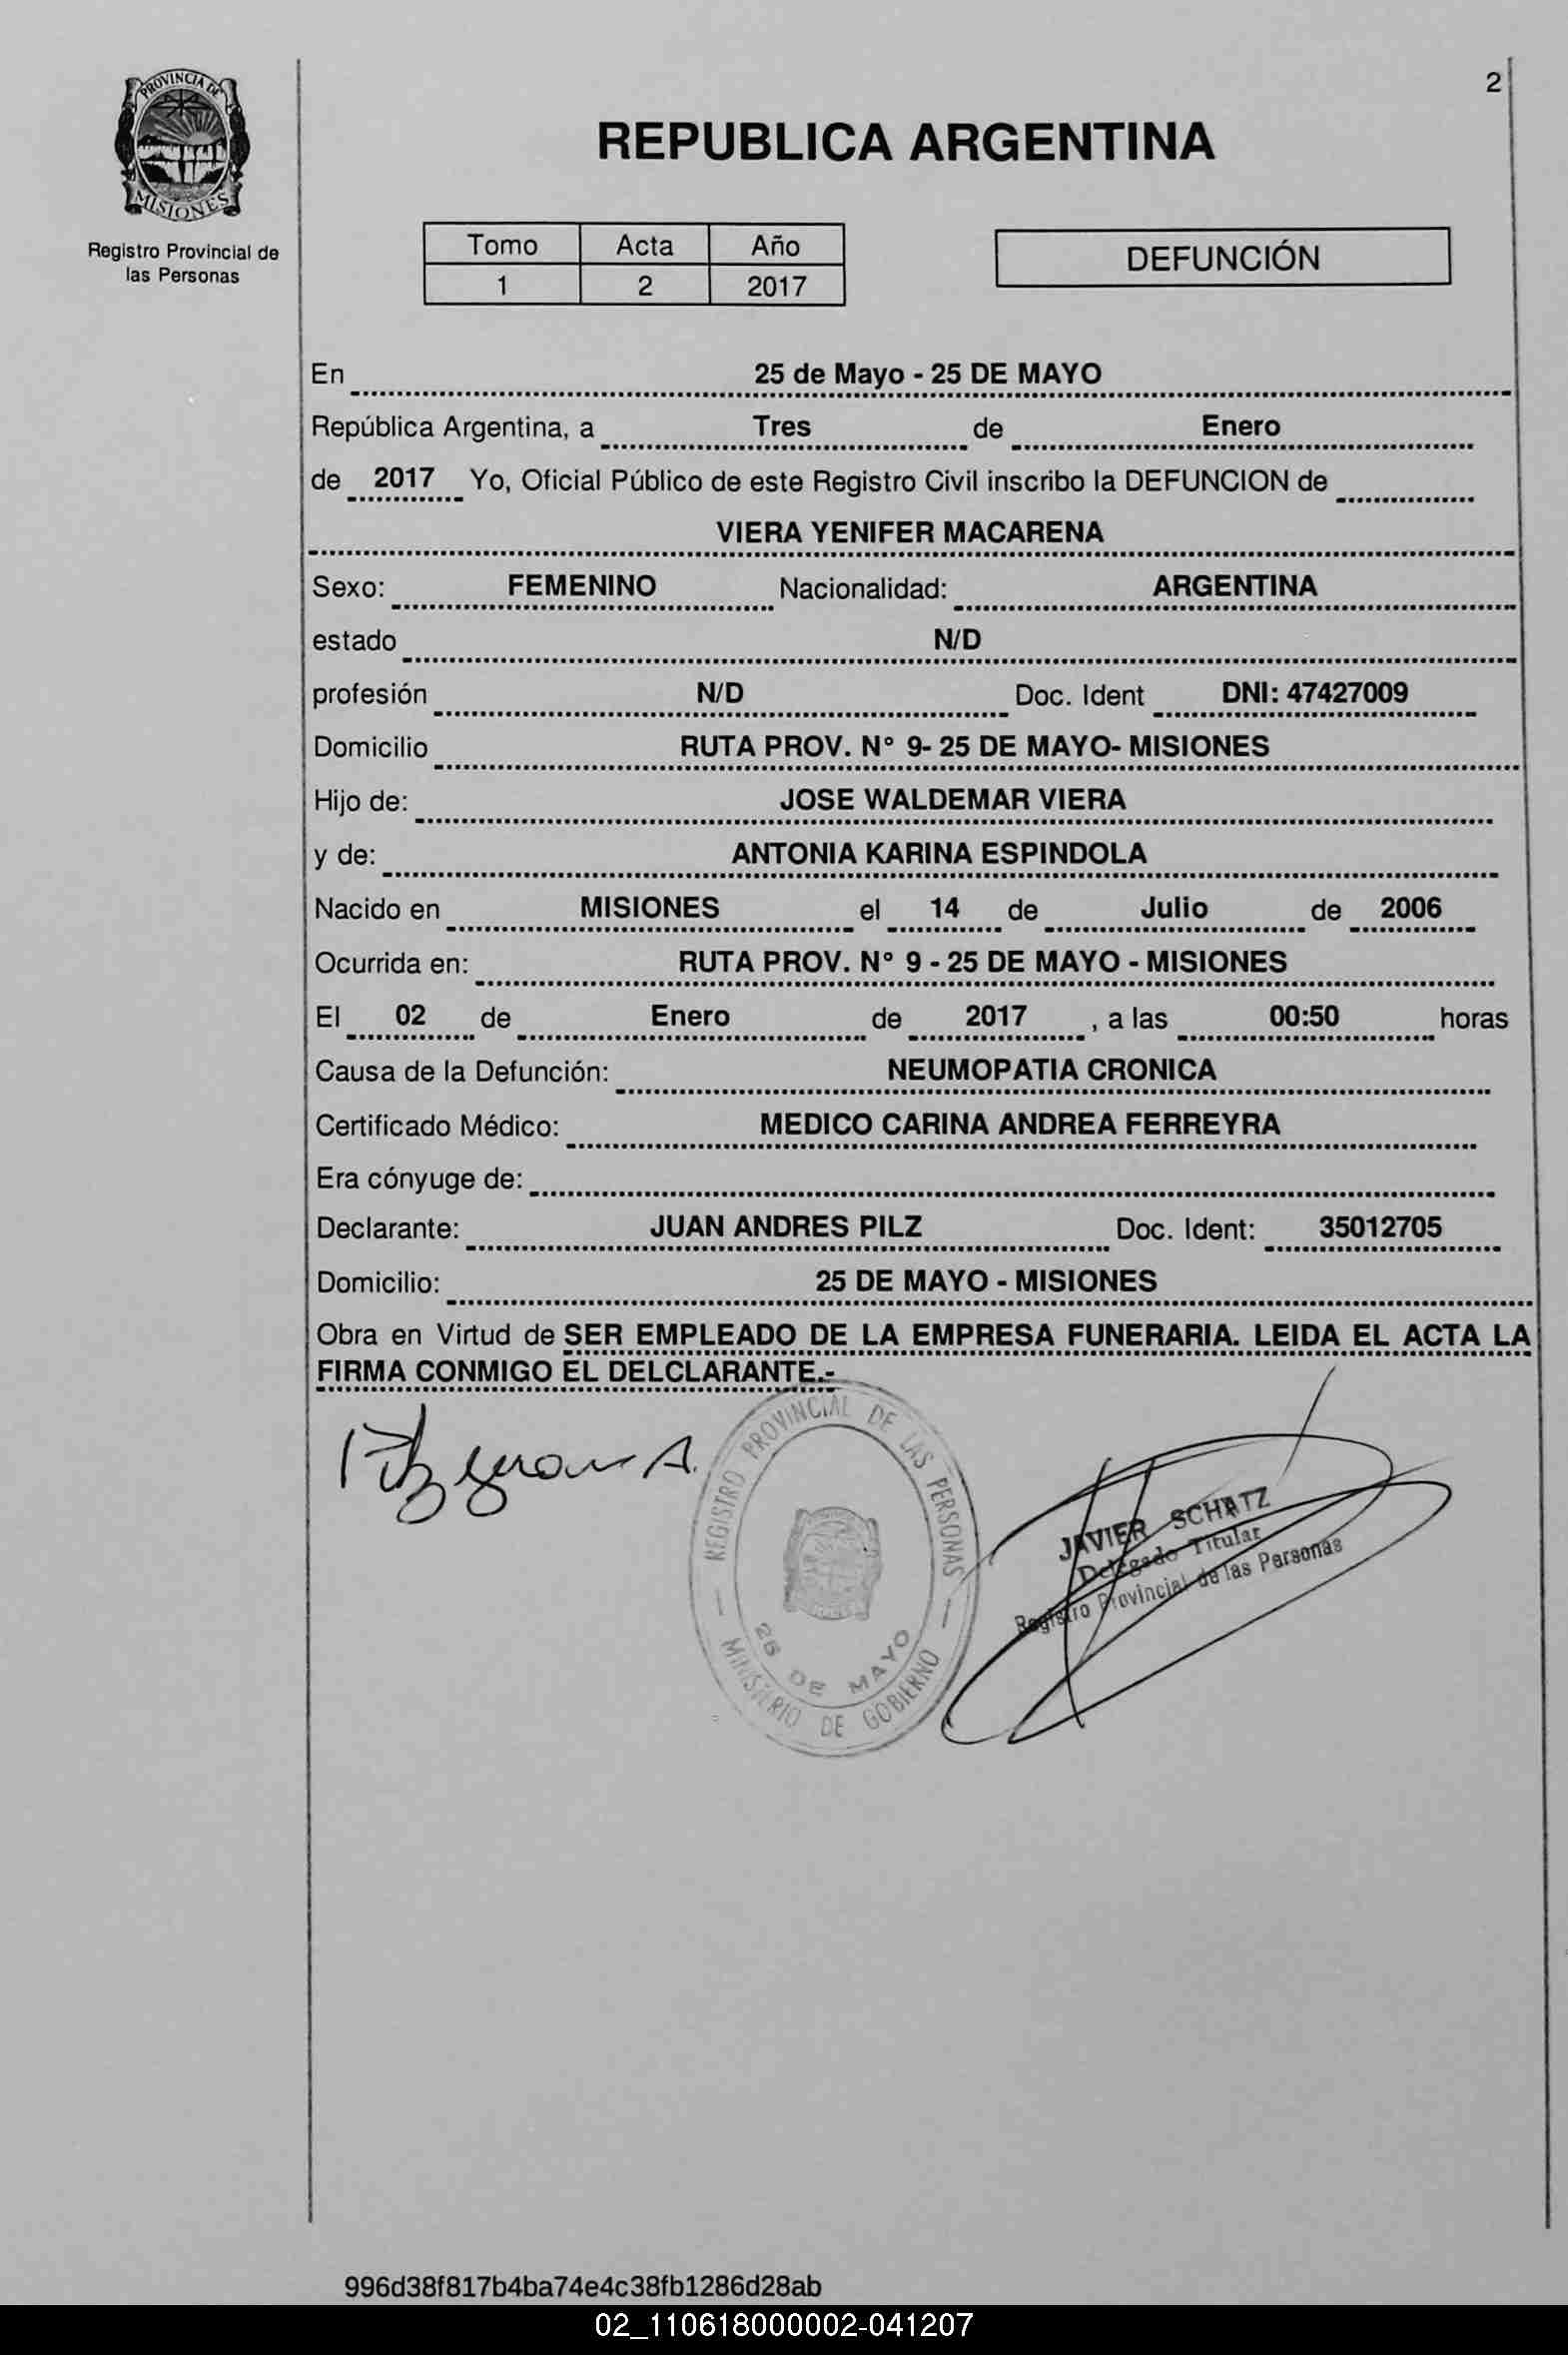 2
PROVINCIA DE
MISIONES
Registro Provincial de
las Personas
REPUBLICA ARGENTINA
Tomo Acta Año
1 2 2017
DEFUNCIÓN
En 25 de Mayo - 25 DE MAYO
República Argentina, a Tres de Enero
de 2017 Yo, Oficial Público de este Registro Civil inscribo la DEFUNCION de
VIERA YENIFER MACARENA
Sexo: FEMENINO Nacionalidad: ARGENTINA
estado N/D
profesión N/D Doc. Ident DNI: 47427009
Domicilio RUTA PROV. N° 9- 25 DE MAYO- MISIONES
Hijo de: JOSE WALDEMAR VIERA
y de: ANTONIA KARINA ESPINDOLA
Nacido en MISIONES el 14 de Julio de 2006
Ocurrida en: RUTA PROV. N° 9 - 25 DE MAYO - MISIONES
El 02 de Enero de 2017 , a las 00:50 horas
Causa de la Defunción: NEUMOPATIA CRONICA
Certificado Médico: MEDICO CARINA ANDREA FERREYRA
Era cónyuge de:
Declarante: JUAN ANDRES PILZ Doc. Ident: 35012705
Domicilio: 25 DE MAYO - MISIONES
Obra en Virtud de SER EMPLEADO DE LA EMPRESA FUNERARIA. LEIDA EL ACTA LA
FIRMA CONMIGO EL DELCLARANTE.-
REGISTRO PROVINCIAL DE LAS PERSONAS
25 DE MAYO
MINISTERIO DE GOBIERNO
JAVIER SCHATZ
Delegado Titular
Registro Provincial de las Personas
996d38f817b4ba74e4c38fb1286d28ab
02_110618000002-041207